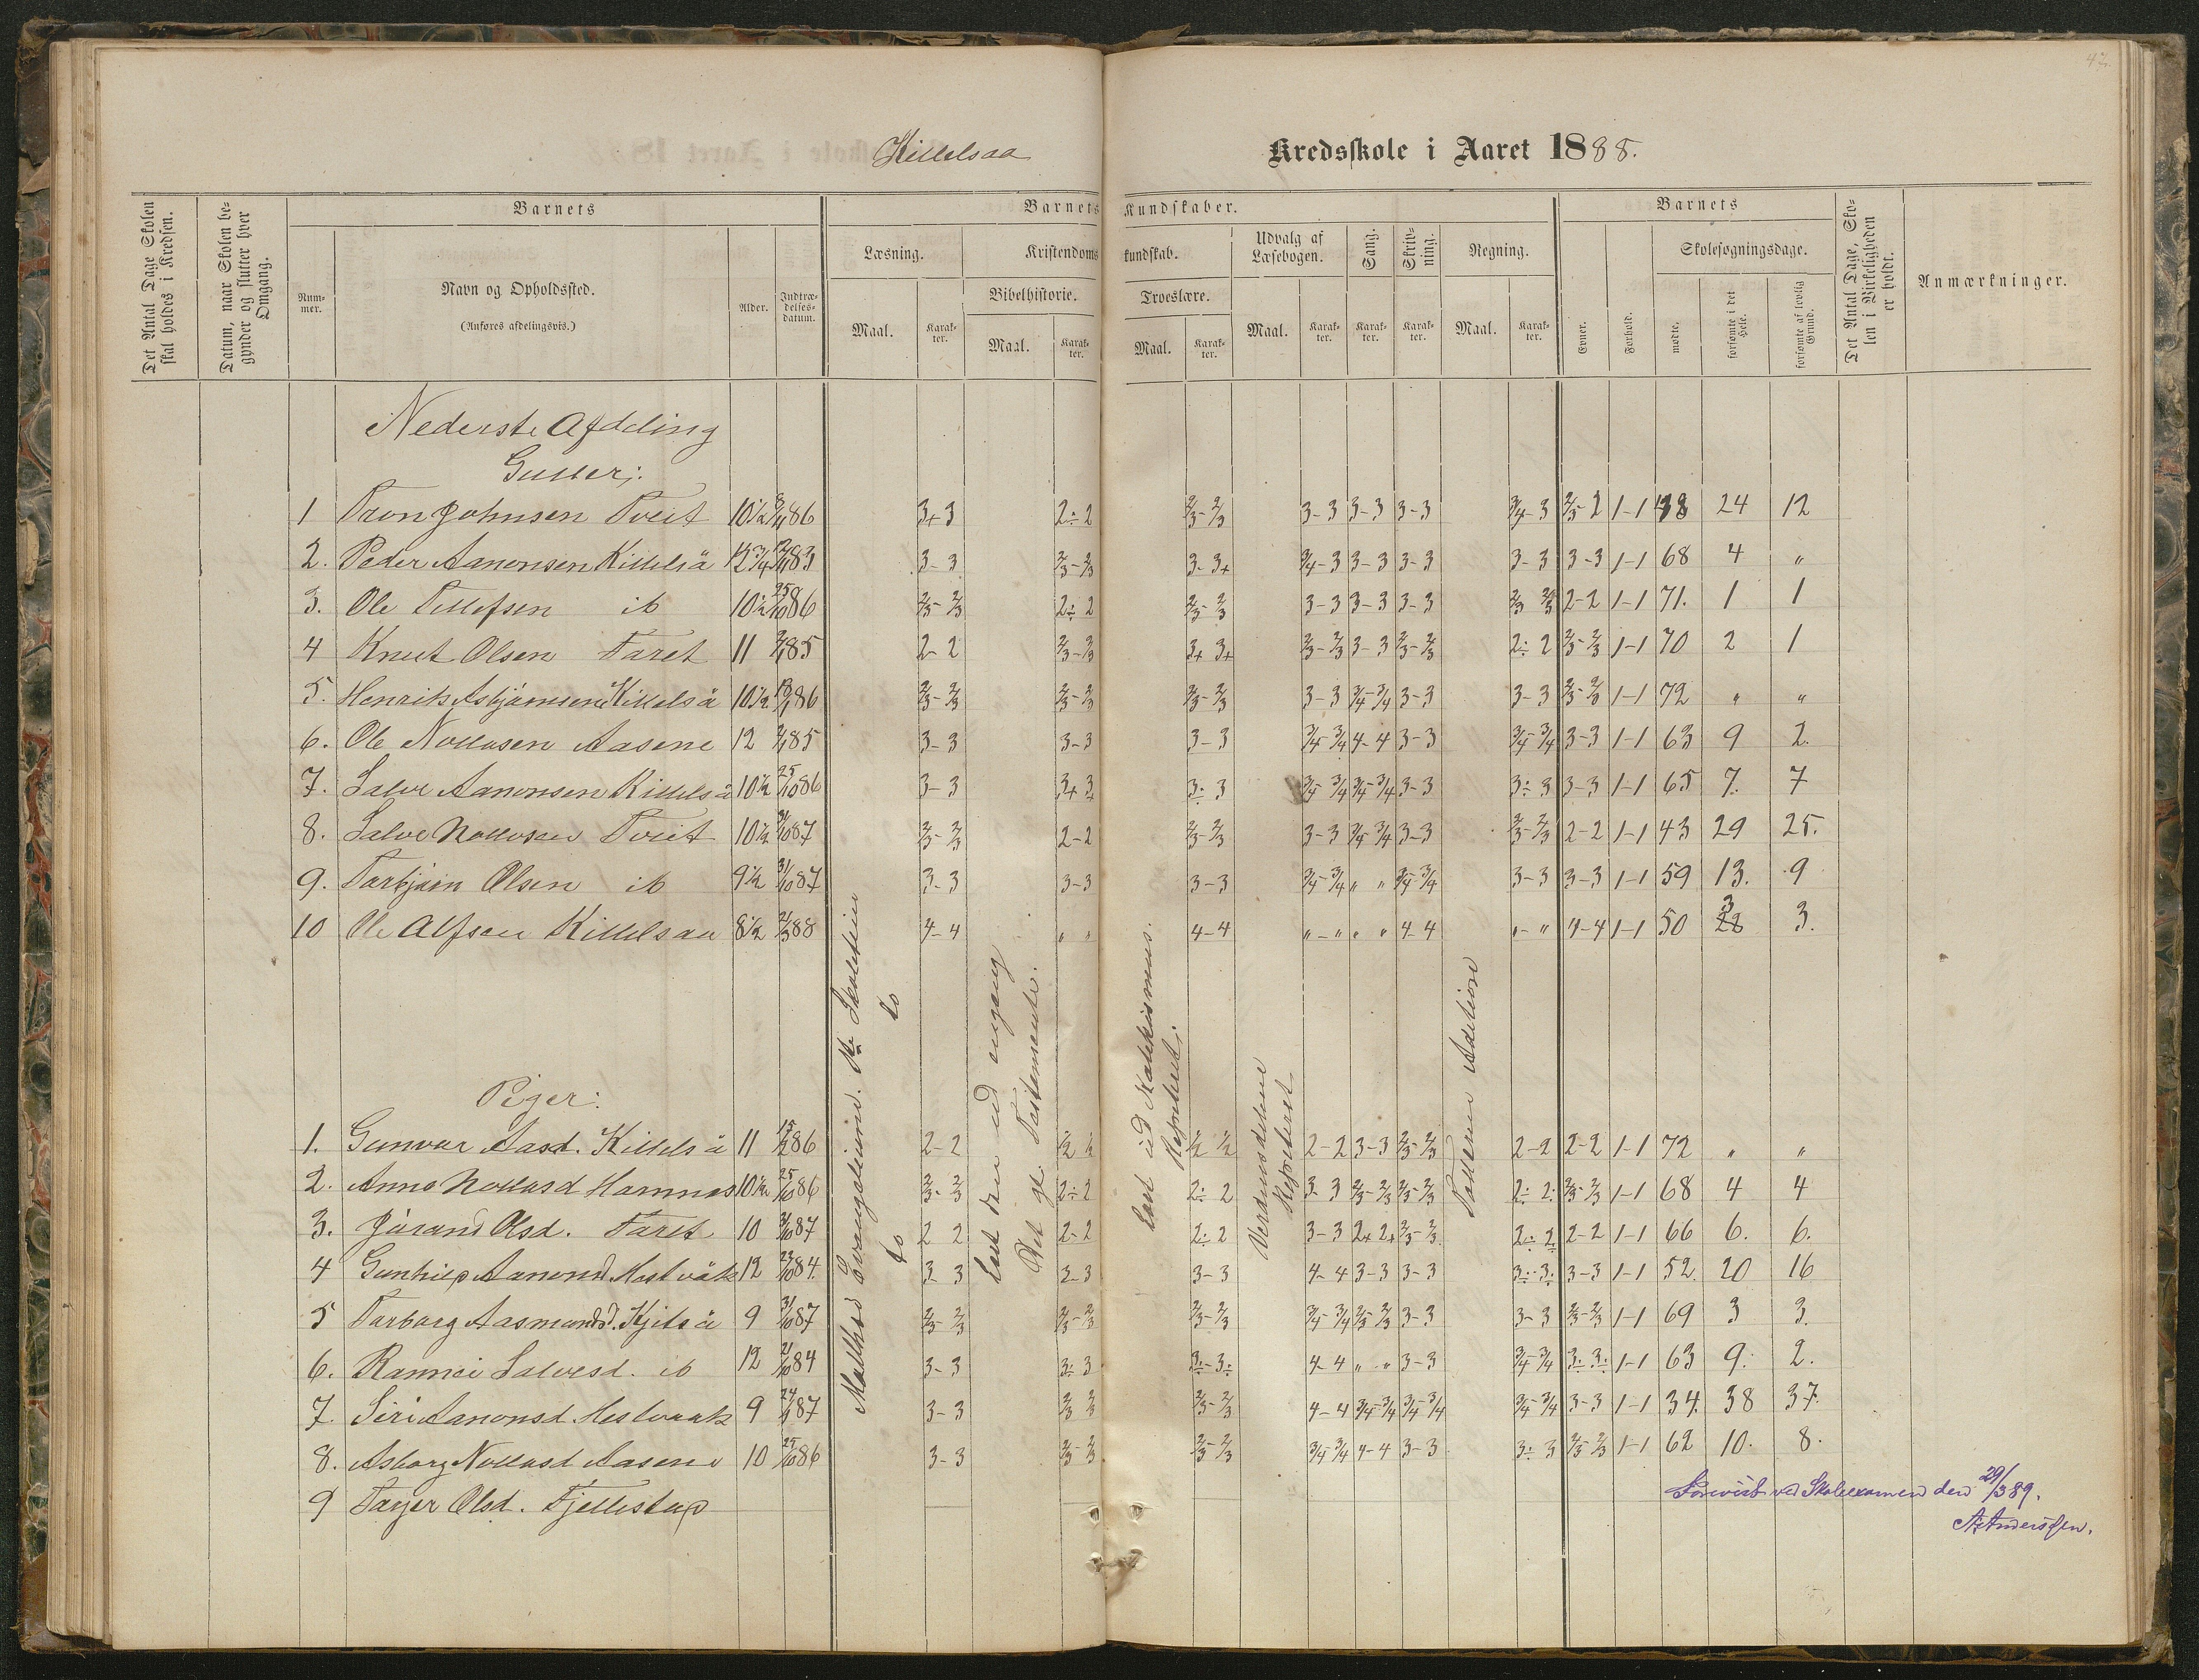 47.
Killelsaa Kredsskole i Aaret 1888.
Det Antal Dage Skolen skal holdes i Kredsen.
Datum, naar Skolen begynder og slutter hver Omgang.
Barnets
Nummer.
Navn og Opholdssted.
(Anføres afdelingsvis.)
Alder.
Indtrædelsesdatum.
Barnets Kundskaber.
Læsning.
Maal.
Karakter.
Kristendomskundskab.
Bibelhistorie.
Maal.
Karakter.
Troeslære.
Maal.
Karakter.
Udvalg af Læsebogen.
Maal.
Karakter.
Sang.
Karakter.
Skrivning.
Karakter.
Regning.
Maal.
Karakter.
Barnets
Evner.
Forhold.
Skolesøgningsdage.
mødte.
forsømte i det Hele.
forsømte af lovlig Grund.
Det Antal Dage, Skolen i Virkeligheden er holdt.
Anmærkninger.
Nederste Afdeling
Gutter:
1 Tron Johnsen Tveit 10 1/2 86 3+3 2÷2 2/3-2/3 3-3 3-3 3-3 3/4-3 2/3-2 1-1 48 24 12
2. Peder Aanonsen Killelså 12 3/4 83 3-3 2/3-2/3 3-3+ 3/4-3 3-3 3-3 3-3 3-3 1-1 68 4 "
3. Ole Tellefsen ib 10 1/2 25/10 86 2/3-2/3 2÷2 2/3-2/3 3-3 3-3 3-3 2/3 2/3 2-2 1-1 71. 1 1
4 Knut Olsen Taret 11 85 2-2 2/3-2/3 3+3+ 2/3-2/3 3-3 2/3-2/3 2÷2 2/3-2/3 1-1 70 2 1
5. Henrik Asbjørnsen Killelså 10 1/2 86 2/3-2/3 2/3-2/3 2/3-2/3 3-3 3/4-3/4 3-3 3-3 2/3-2/3 1-1 72 " "
6. Ole Nollvsen Aasene 12 85 3-3 3-3 3-3 3/4-3/4 4-4 3-3 3/4-3/4 3-3 1-1 63 9 2.
7. Salve Aanonsen Killelså 10 1/2 25/10 86 3-3 3+3 3÷3 3/4-3/4 3/4-3/4 3-3 3÷3 3-3 1-1 65 7. 7
8. Salve Nollvsen Tveit 10 1/2 31/10 87 2/3-2/3 2-2 2/3-2/3 3-3 3/4-3/4 3-3 2/3-2/3 2-2 1-1 43 29 25.
9. Torbjørn Olsen ib 9 1/2 31/10 87 3-3 3-3 3-3 3/4-3/4 " " 3/4-3/4 3-3 3-3 1-1 59 13. 9
10 Ole Alfsen Killelsaa 8 1/2 2/3 88 4-4 " " 4-4 "-" " " 4-4 "-" 4-4 1-1 50 3 28 3.
Piger:
1. Gunvor Aasd. Killelså 11 15/2 86 2-2 1/2 1/2 1/2 1/2 2-2 3-3 2/3-2/3 2-2 2-2 1-1 72 " "
2. Anne Nollvsd Hamnes 10 1/2 25/10 86 2/3-2/3 2÷2 2÷2 3-3 2/3-2/3 2/3-2/3 2÷2÷ 2/3-2/3 1-1 68 4 4
3. Jórand Olsd. Taret 10 31/10 87 2 2 2-2 2÷2 3-3 2+2+ 2/3-2/3 2÷2÷ 2-2 1-1 66 6. 6.
4 Gunhild Aanonsd Mostvåk 12 22/10 84 3-3 3-3 3-3 4-4 3-3 3-3 3÷3÷ 3-3 1-1 52. 20 16
5 Torborg Aasmundsd. Kjitså 9 31/10 87 2/3-2/3 2/3-2/3 2/3-2/3 3/4-3/4 2/3-2/3 3-3 3-3 2/3-2/3 1-1 69 3 3.
6. Rannei Salvesd. ib 12 21/10 84 3-3 3÷3 3÷-3÷ 4-4 " " 3-3 3/4-3/4 3÷3÷ 1-1 63 9. 2.
7. Siri Aanonsd. Mestvaak 9 87 3-3 2/3 2/3 2/3-2/3 4-4 3/4-3/4 3/4-3/4 3/4-3/4 3-3 1-1 34. 38 37.
8. Asborg Nollvsd Aasene 10 25/10 86 3-3 2/3-2/3 2/3-2/3 3/4-3/4 4-4 3-3 3÷3 2/3-2/3 1-1 62 10. 8.
9 Tayer Olsd. Fjellestup
Mathæi Evangelium.
do
do
Det gl. Testamente.
Læst ud Katekismus.
Repeteret.
Verdensdelene
Repeteret.
Addition
Forevist ved Skoleexamen den 29/3 89.
A. Anderssen.